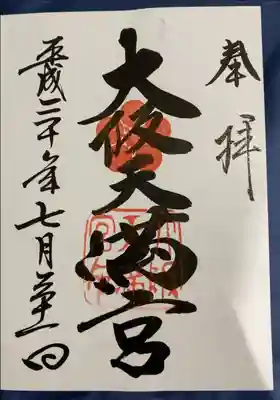 奉拝
大阪天満宮
平成三十年七月廿一日